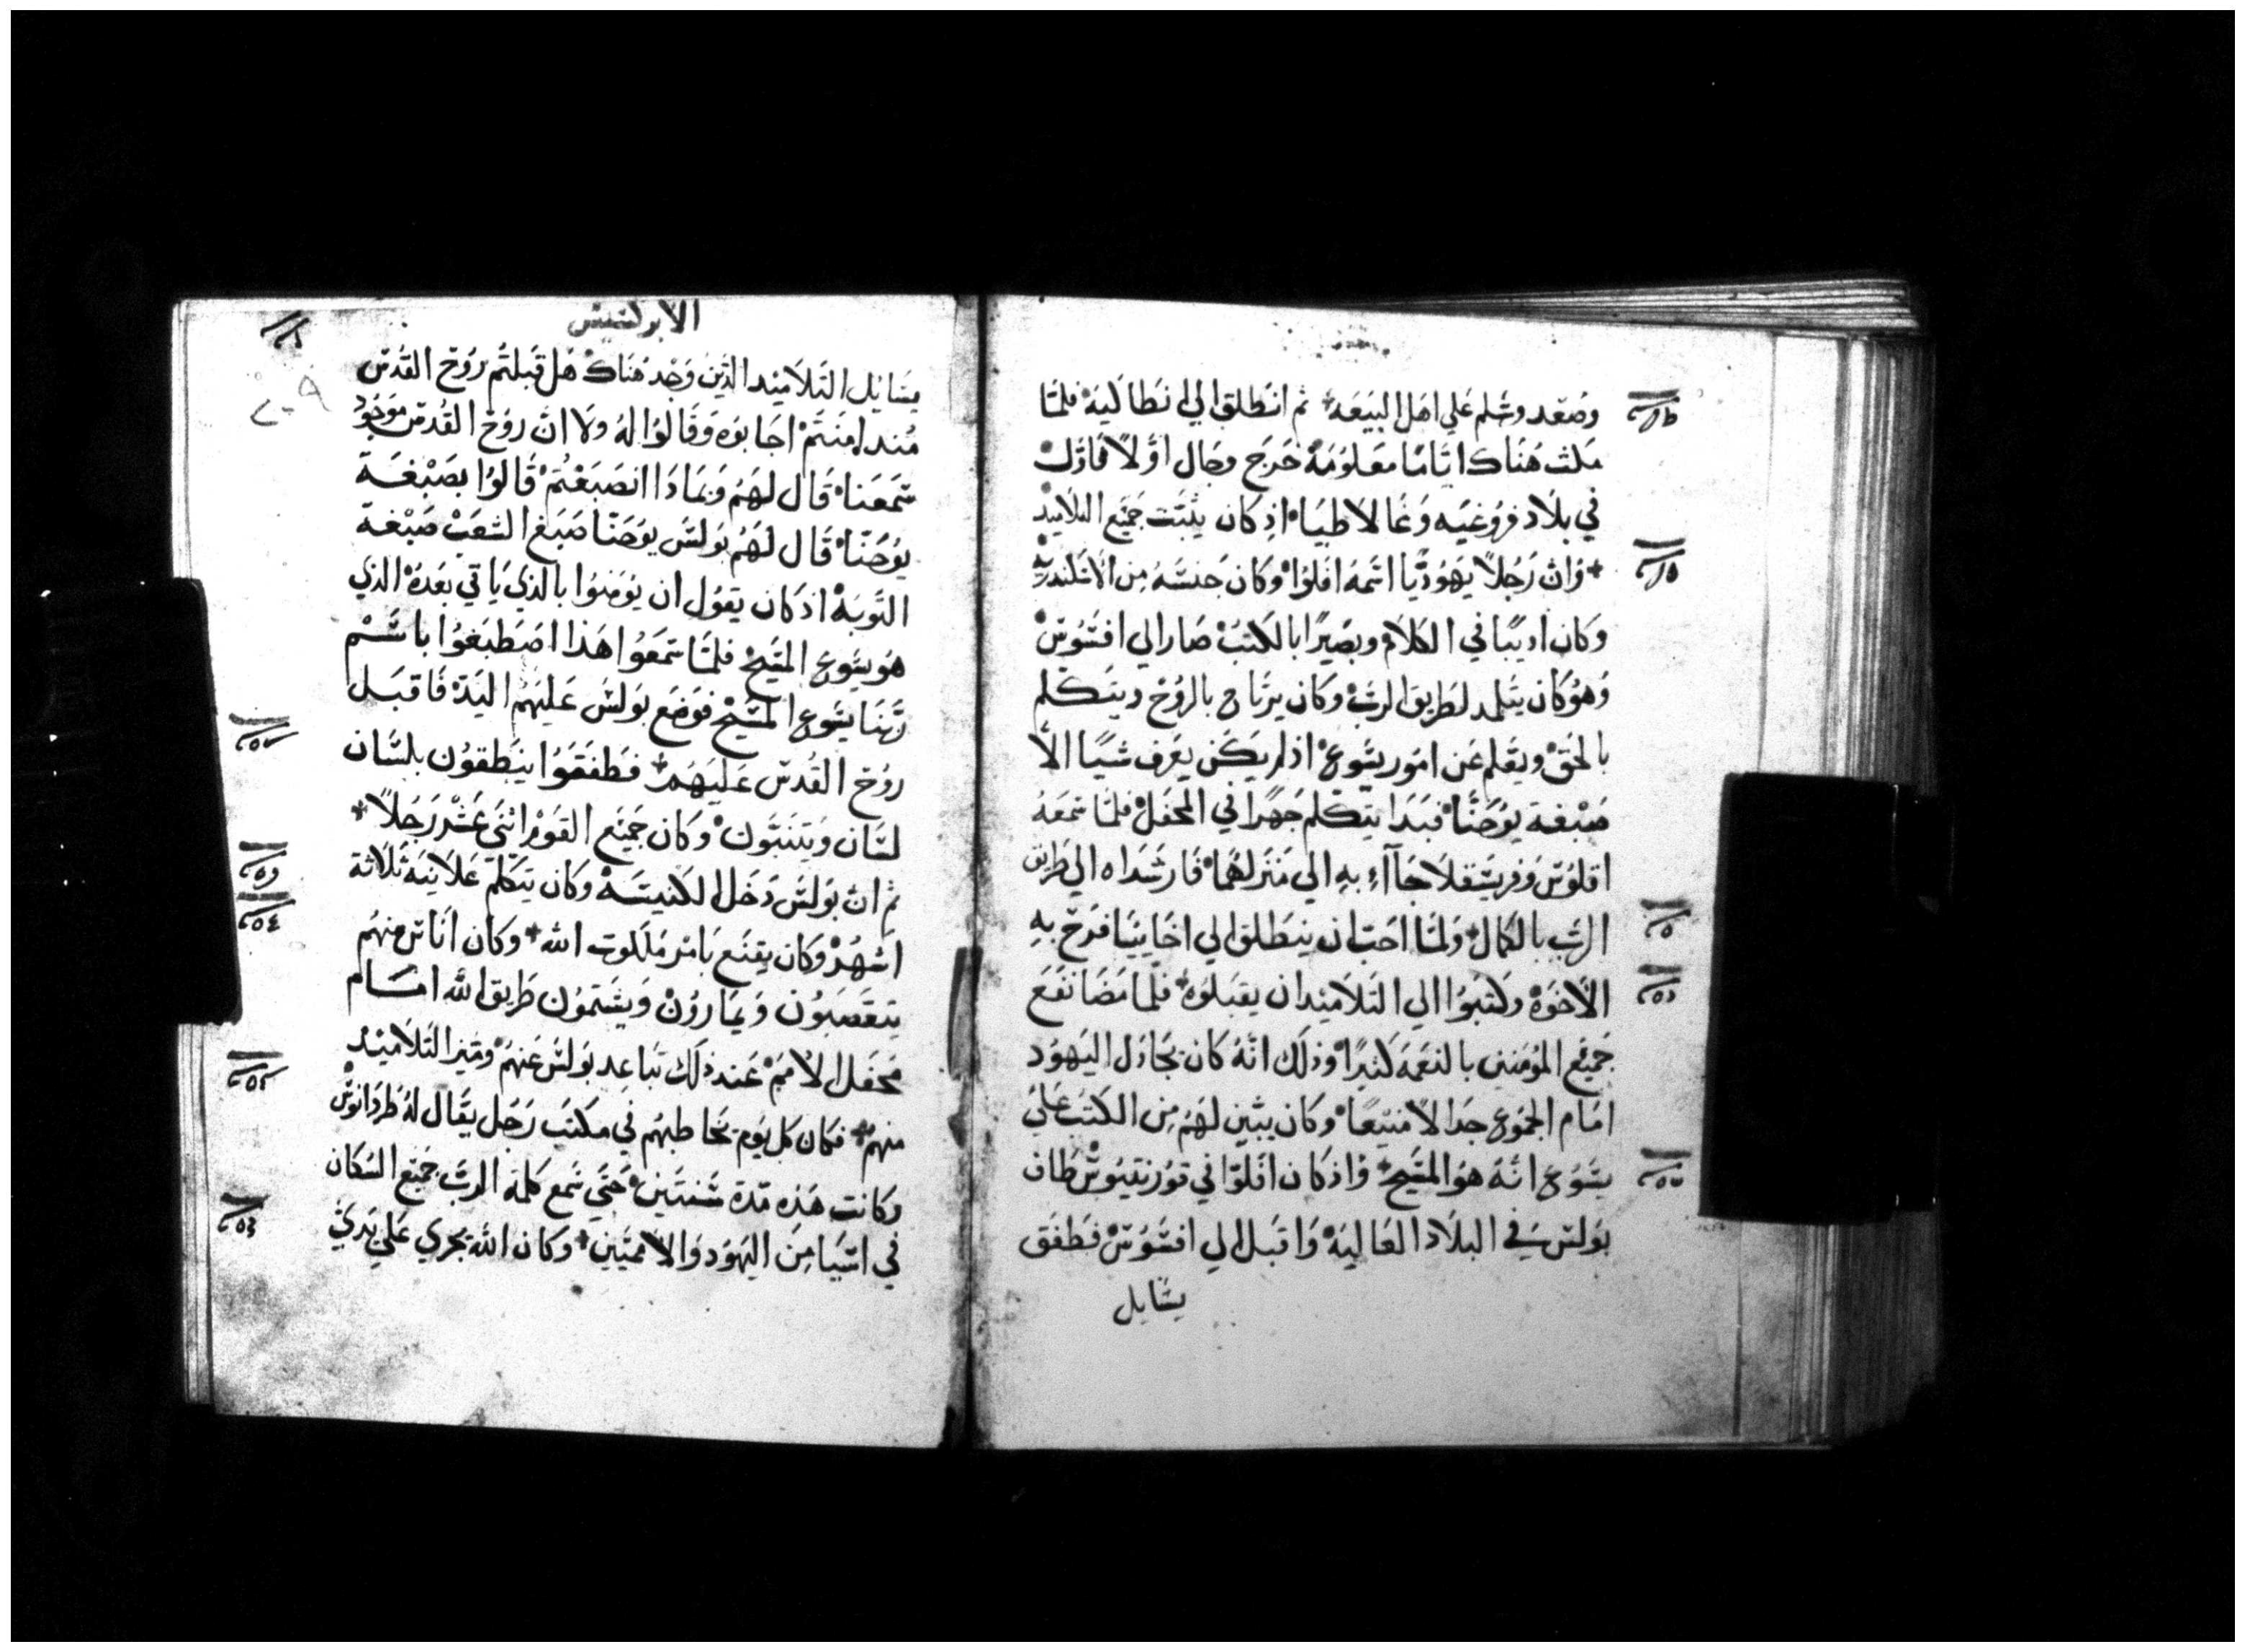 وصَعد وسَلم عَلي اهل البيَعَه ثم انطلق الي انطاكيَه فلمَّا
مكث هُنَاك ايَّامًا معَلوُمَةْ خَرَج وجَال اوَّلاً فاوَّلْ
في بلَاد فروُغيَه وَغَالاطيَا اذِ كان يثبَت جَميَع التلاميذ
وَان رَجُلاً يهَوُديًّا اسَمهُ افَلوْا وكَان جَنسَهُ مِن الاسَكندريهْ
وَكان اديبًا في الكلَام وبصَيرًا بالكتبْ صَار الي افسَوُسْ
وَهوُ كَان يتَلمد لطَريق الربّْ وكَان يرتَاح بالروُح ويتَكلم
بالحَقْ ويعَلم عَن امَور يسَوع اذ لم يكَن يعَرف شيًا الَّا
صَبْغة يوُحَنَّا فبَدَا يتكلم جَهرًا في المحفَل فلمَا سَمعَهُ
اقلوُسْ وَفريسَقلَا جَآءا بهِ الي مَنزَلهُمَا فَارشَداه الي طَريق
الربّ بالكمَال وَلمَّا احَبّ ان ينَطَلق الي اخَاييَا فرَح بهِ
الاخَوَهْ وكَتبوُا الي التلاَميَذ ان يقبَلوَه فلمَّا مَضَا نفَعَ
جَميَع المؤمَنين بالنعَمَه كَثيرًا وذلَك انَّهُ كَان يجَادَل اليَهوُد
امَام الجمُوع جَدالاً منيَعًا وكَان يبَيّن لهَمُ مِن الكتَب عَليَ
يسَوُع انَّهُ هوُ المسَيح وَاذ كَان افَلوَّا في قوُرنتيَوُسْ طَاف
بوَلسَ في البلَاد العَاليَهْ وَاقبَل الي افسَوُسْ فطَفَق
يسَايل
الابركسيس
يسَايل التلاَميَد الذَّين وَجَد هُنَاكْ هَل قبَلتُم روُح القدُس
مُند امنتَمْ اجَابوَه وَقَالوُا لهُ ولَا انَّ روُح القدُس موَجَوُد
سَمعَنَا قَال لهَمُ وَبمَادَا انصَبَغتُمْ قَالوُا بصَبْغَــة
يوُحَنَّا قَال لهَمُ بوَلسَ يوُحَنَّا صَبَغ الشعَبْ صَبْغة
التَّوبَهْ اذ كَان يقوُل ان يؤمَنوُا بالذي يَاتي بعَدَهْ الذي
هوُ يسَوعُ المسَيحْ فلمَّا سَمعَوُا هَذا اصَطبَغوُا باسَــمْ
رَبّنَا يسَوع المسَيحْ فوَضَع بوَلسَ عَليَهمُ اليَدْ فَاقبَــل
روُح القدُس عَليَهمُ فطَفقَوُا ينَطقوُن بلسَان
لسَان وَيتَنبَّوُنْ وكَان جَميَع القوَمْ اثنَى عَشرَ رَجُلاً
ثم ان بوَلسَ دَخَل الكَنيسَهْ وكَان يتَكلمّ عَلاَنيَه ثلاَثة
اشهَرْ وكَان يقنَع بَامْر مَلكوت الله وكَان انَاسْ منهُم
يتعَصَبوُن وَيمَاروُنْ وَيشَتموُن طَريق الله امَــام
مَحفَل الامَمْ عَند ذلَك تبَاعد بوَلسَ عَنهمُ ومَيَّز التلاَميَد
منهَمْ فكَان كل يوَم يخَاطبهُم في مكتَب رَجُل يقَال لهُ طرَدَانوُسْ
وكَانت هَذه مَدة سَنتَينْ حَتَّي سَمع كَلمَة الربّ جَميَع السُكان
في اسَيَا مِن اليَهوُد وَالاممَيّين وكَان الله يجَري عَلي يدَيّ